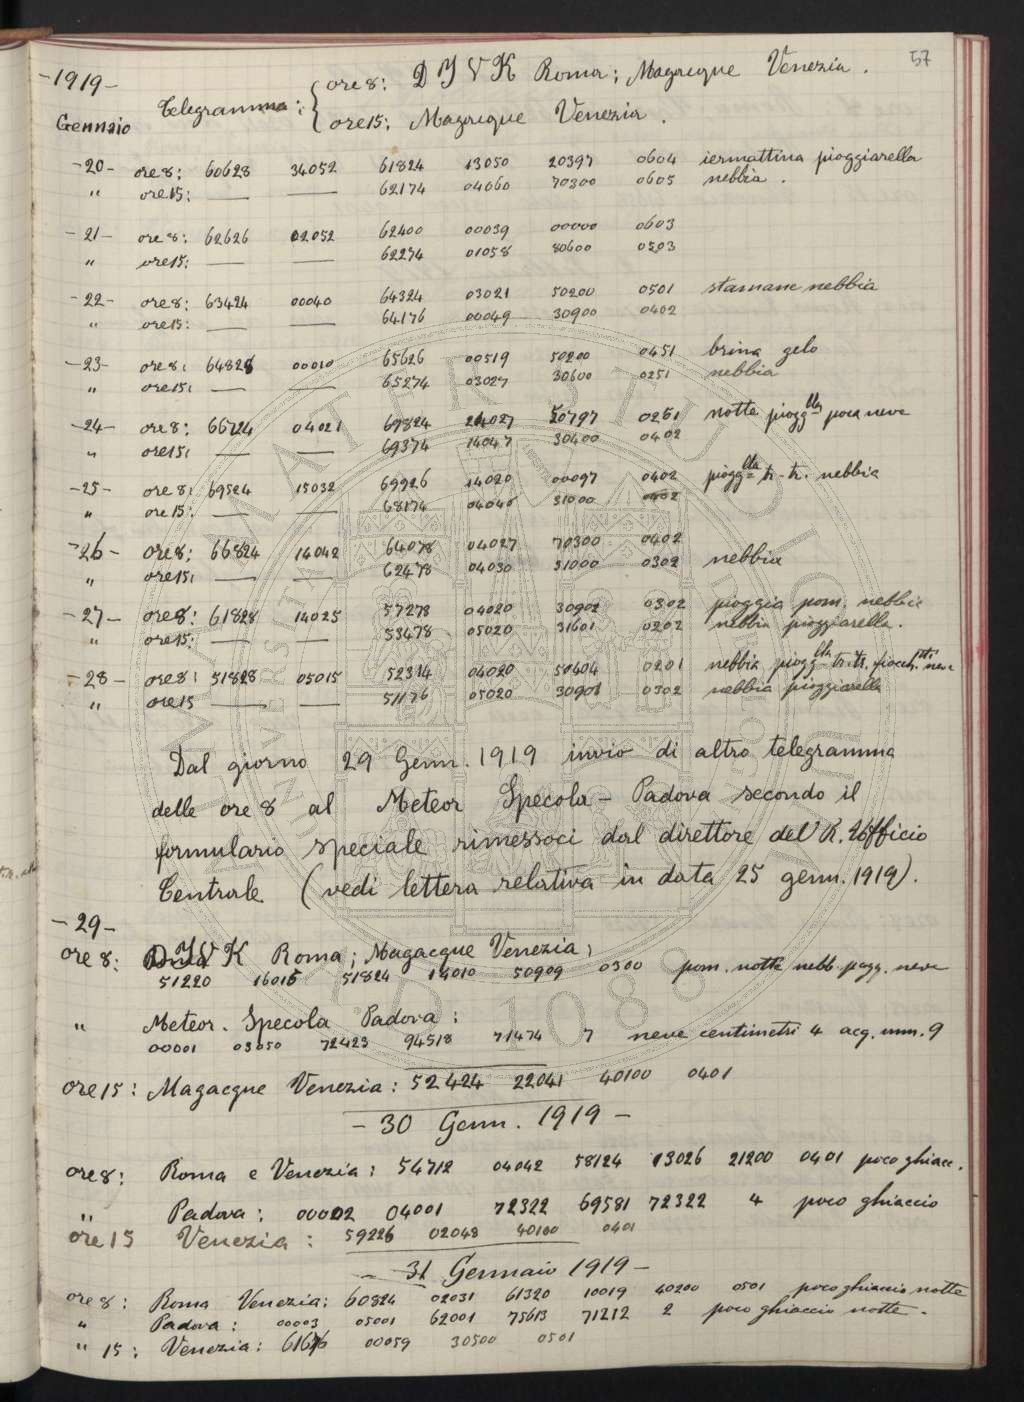 57
-1919-
Gennaio
Telegramma: ore 8: D I V K Roma; Magacque Venezia.
ore 15: Magacque Venezia.
-20- ore 8: 60628 34052 61824 13050 20397 0604 iermattina pioggiarella
" ore 15: — — 62174 04060 70300 0605 nebbia.
-21- ore 8: 62626 02052 62400 00039 00000 0603
" ore 15: — — 62274 01058 80600 0503
-22- ore 8: 63424 00040 64324 03021 50200 0501 stamane nebbia
" ore 15: — — 64176 00049 30900 0402
-23- ore 8: 64828 00010 65626 00519 50200 0451 brina gelo
" ore 15: — — 65274 03027 30600 0251 nebbia
-24- ore 8: 66724 04021 69824 24027 50797 0251 notte piogg.lla poca neve
" ore 15: — — 69374 14047 30400 0402
-25- ore 8: 69524 15032 69926 14020 00097 0402 piogg.lla tr. tr. nebbia
" ore 15: — — 68174 04046 51000 0402
-26- ore 8: 66824 14042 64078 04027 70300 0402
" ore 15: — — 62478 04030 51000 0302 nebbia
-27- ore 8: 61828 14025 57278 04020 30902 0302 pioggia pom. nebbia
" ore 15: — — 53478 05020 31601 0202 nebbia pioggiarella.
-28- ore 8: 51828 05015 52314 04020 50404 0201 nebbia piogg.lla tr. tr. fiocch.tti neve
" ore 15 — — 51176 05020 30901 0302 nebbia pioggiarella
Dal giorno 29 Genn. 1919 invio di altro telegramma
delle ore 8 al Meteor Specola - Padova secondo il
formulario speciale rimessoci dal direttore del R. Ufficio
Centrale (vedi lettera relativa in data 25 genn. 1919).
-29-
ore 8: D I V K Roma; Magacque Venezia;
51220 16015 51824 14010 50909 0300 pom. notte nebb. piogg. neve
" Meteor. Specola Padova:
00001 03050 72423 94518 71474 7 neve centimetri 4 acq. mm. 9
ore 15: Magacque Venezia: 52424 22041 40100 0401
- 30 Genn. 1919 -
ore 8: Roma e Venezia: 54712 04042 58124 13026 21200 0401 poco ghiacc.
" Padova: 00002 04001 72322 69581 72322 4 poco ghiaccio
ore 15 Venezia: 59226 02048 40100 0401
- 31 Gennaio 1919 -
ore 8: Roma Venezia: 60824 02031 61320 10019 40200 0501 poco ghiaccio notte
" Padova: 00003 05001 62001 75613 71212 2 poco ghiaccio notte.
" 15: Venezia: 61676 00059 30500 0501